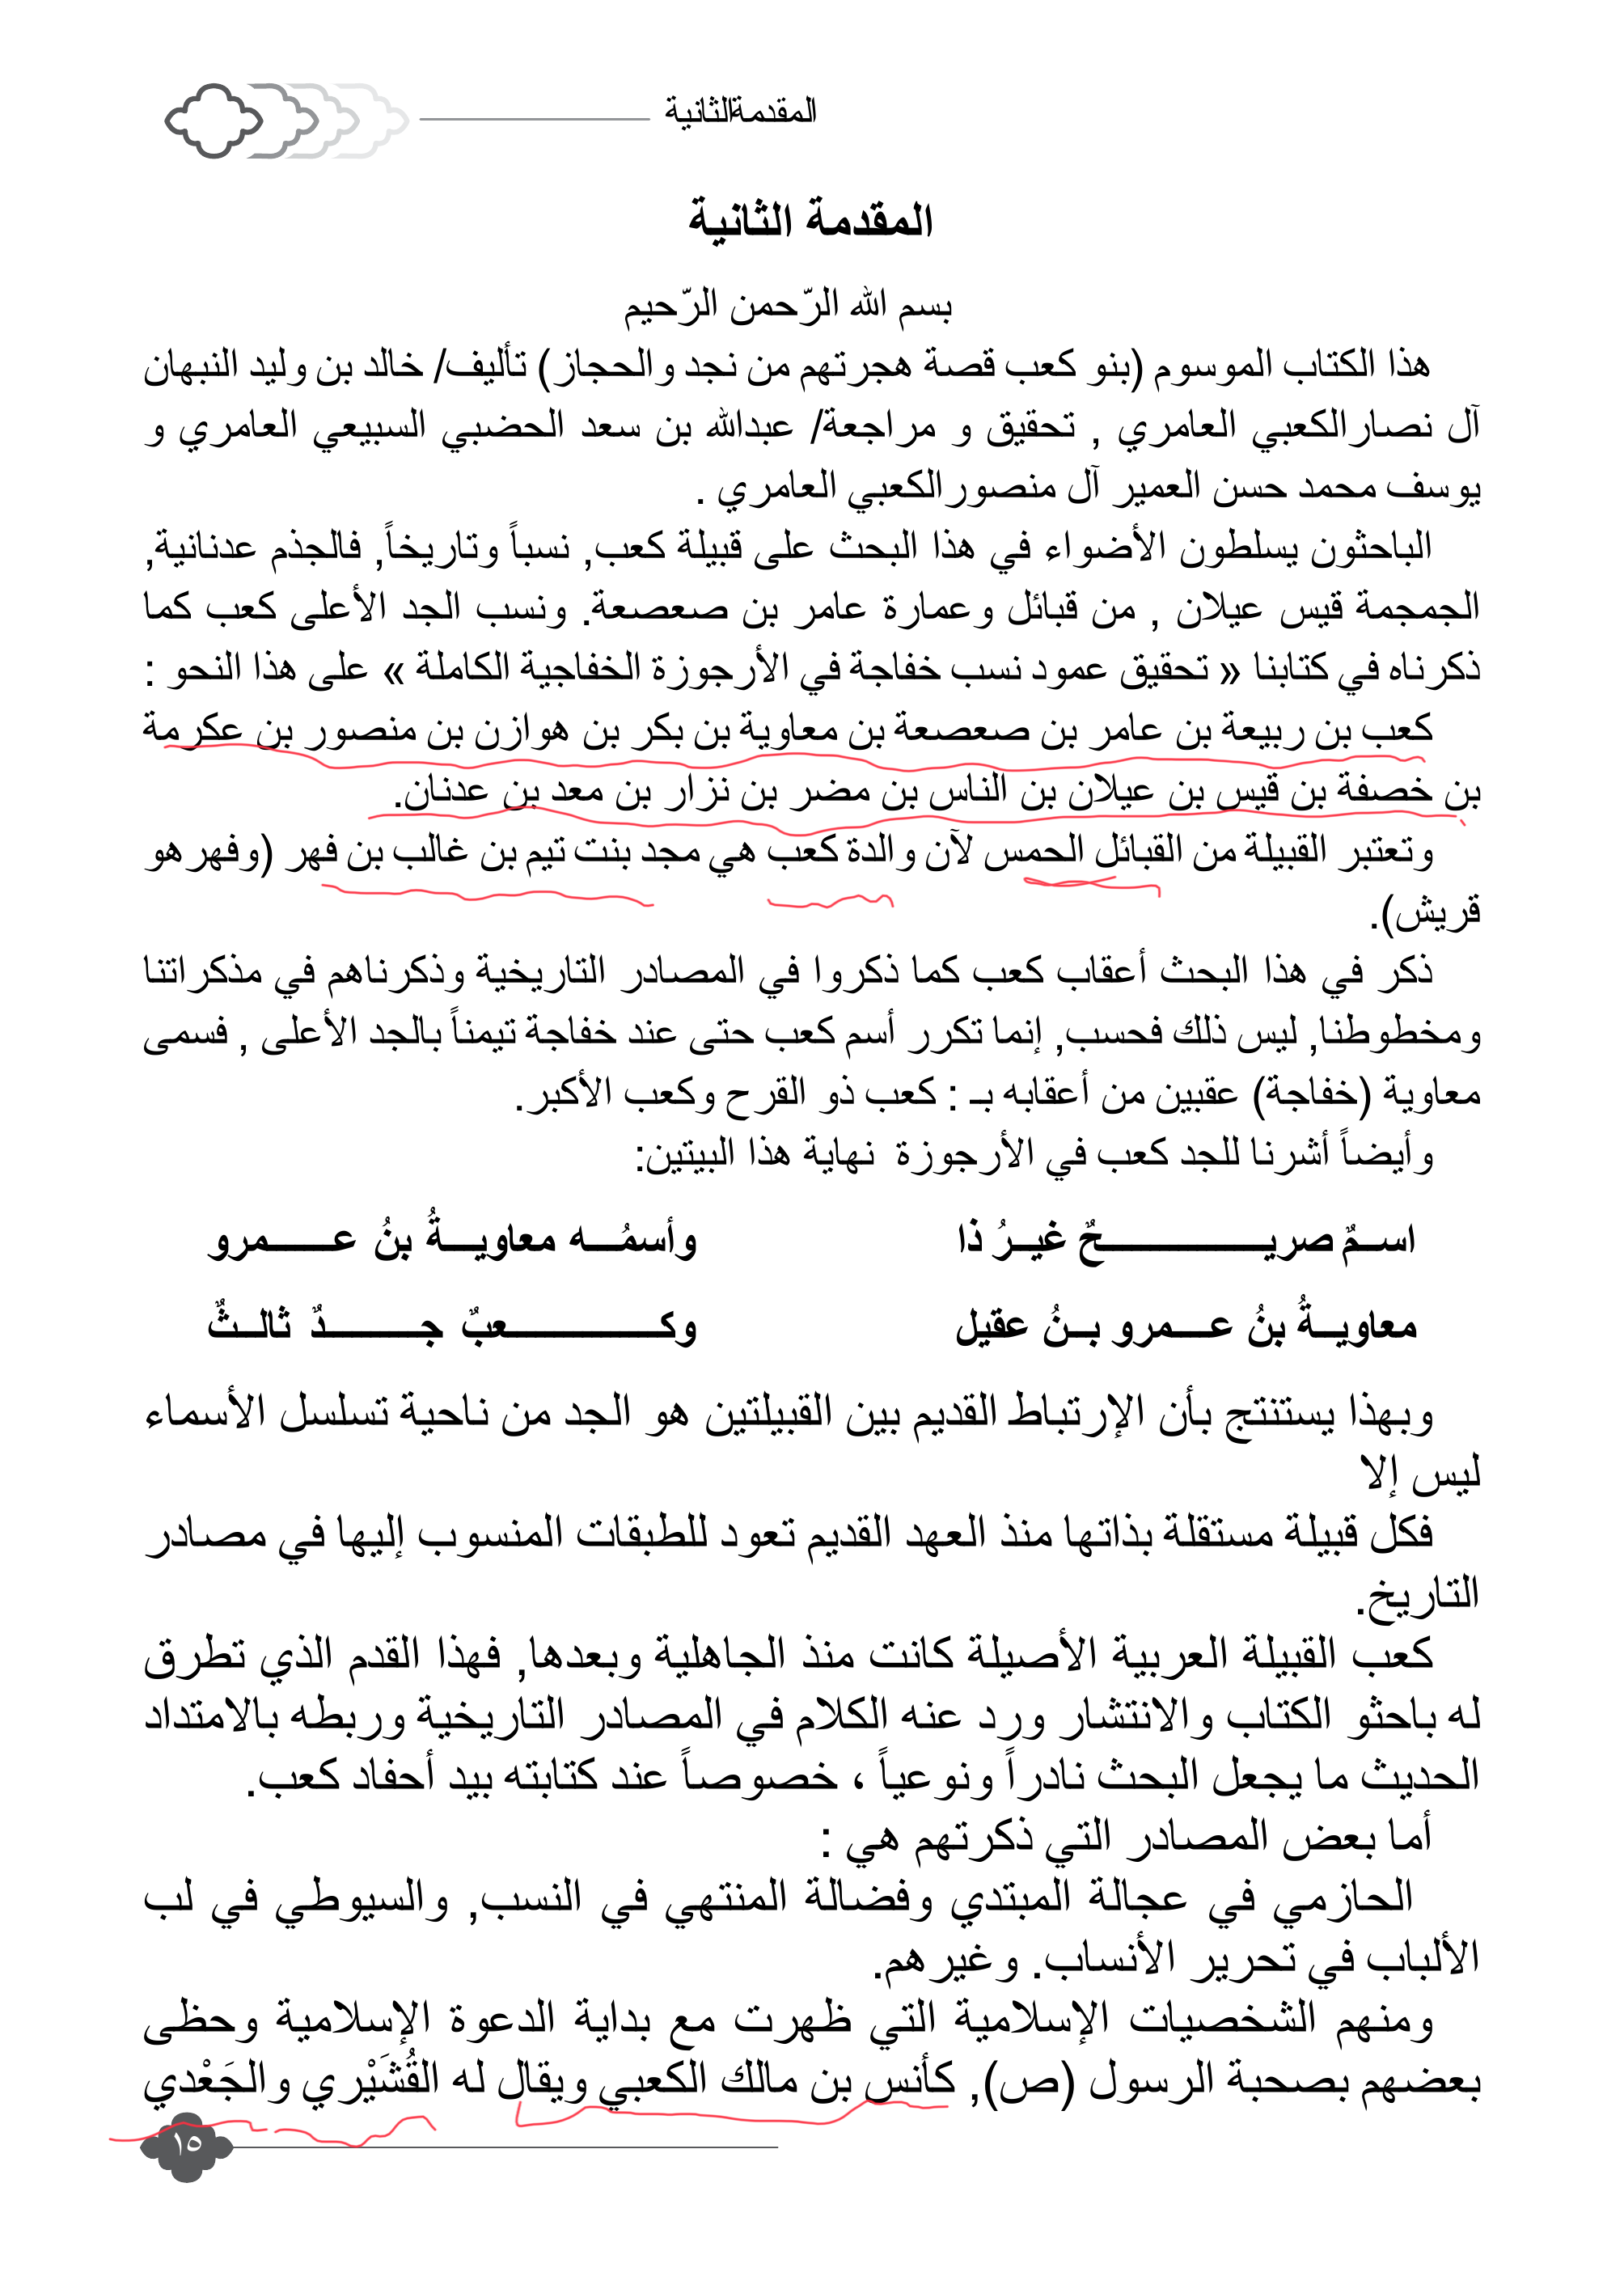 المقدمةالثانية
المقدمة الثانية
بسم الله الرّحمن الرّحيم
هذا الكتاب الموسوم (بنو كعب قصة هجرتهم من نجد والحجاز) تأليف/ خالد بن وليد النبهان
آل نصارالكعبي العامري , تحقيق و مراجعة/ عبدالله بن سعد الحضبي السبيعي العامري و
يوسف محمد حسن العمير آل منصورالكعبي العامري .
الباحثون يسلطون الأضواء في هذا البحث على قبيلة كعب, نسباً وتاريخاً, فالجذم عدنانية,
الجمجمة قيس عيلان , من قبائل وعمارة عامر بن صعصعة. ونسب الجد الأعلى كعب كما
ذكرناه في كتابنا « تحقيق عمود نسب خفاجة في الأرجوزة الخفاجية الكاملة » على هذا النحو :
كعب بن ربيعة بن عامر بن صعصعة بن معاوية بن بكر بن هوازن بن منصور بن عكرمة
بن خصفة بن قيس بن عيلان بن الناس بن مضر بن نزار بن معد بن عدنان.
وتعتبر القبيلة من القبائل الحمس لآن والدة كعب هي مجد بنت تيم بن غالب بن فهر (وفهرهو
قريش).
ذكر في هذا البحث أعقاب كعب كما ذكروا في المصادر التاريخية وذكرناهم في مذكراتنا
ومخطوطنا, ليس ذلك فحسب, إنما تكرر أسم كعب حتى عند خفاجة تيمناً بالجد الأعلى , فسمى
معاوية (خفاجة) عقبين من أعقابه بـ : كعب ذو القرح وكعب الأكبر.
وأيضاً أشرنا للجد كعب في الأرجوزة نهاية هذا البيتين:
اســمٌ صريــــــــــــــــحٌ غيــرُ ذا وأسمُـــه معاويـــةُ بنُ عــــــمرو
معاويــةُ بنُ عــــمرو بــنُ عقيل وكـــــــــــــــعبٌ جـــــــــدٌ ثالــثٌ
وبهذا يستنتج بأن الإرتباط القديم بين القبيلتين هو الجد من ناحية تسلسل الأسماء
ليس إلا
فكل قبيلة مستقلة بذاتها منذ العهد القديم تعود للطبقات المنسوب إليها في مصادر
التاريخ.
كعب القبيلة العربية الأصيلة كانت منذ الجاهلية وبعدها, فهذا القدم الذي تطرق
له باحثو الكتاب والانتشار ورد عنه الكلام في المصادر التاريخية وربطه بالامتداد
الحديث ما يجعل البحث نادراً ونوعياً ، خصوصاً عند كتابته بيد أحفاد كعب.
أما بعض المصادر التي ذكرتهم هي :
الحازمي في عجالة المبتدي وفضالة المنتهي في النسب, والسيوطي في لب
الألباب في تحرير الأنساب. وغيرهم.
ومنهم الشخصيات الإسلامية التي ظهرت مع بداية الدعوة الإسلامية وحظى
بعضهم بصحبة الرسول (ص), كأنس بن مالك الكعبي ويقال له القُشَيْري والجَعْدي
١٥